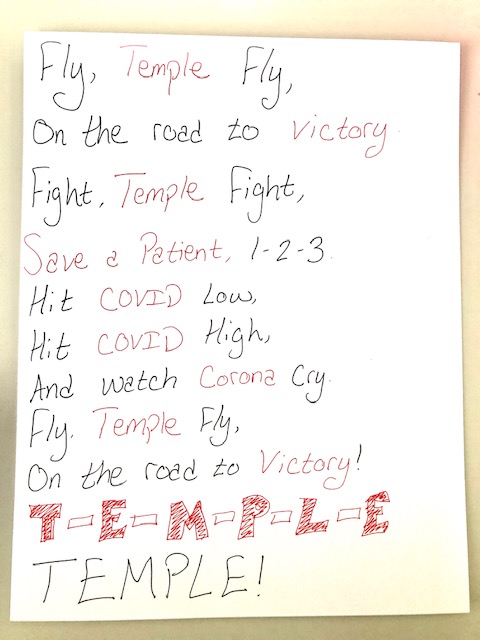 Fly, Temple Fly,
On the road to victory.
Fight, Temple Fight,
Save a Patient, 1-2-3.
Hit COVID Low,
Hit COVID High,
And watch Corona Cry.
Fly. Temple Fly,
On the road to Victory!
T-E-M-P-L-E
TEMPLE!